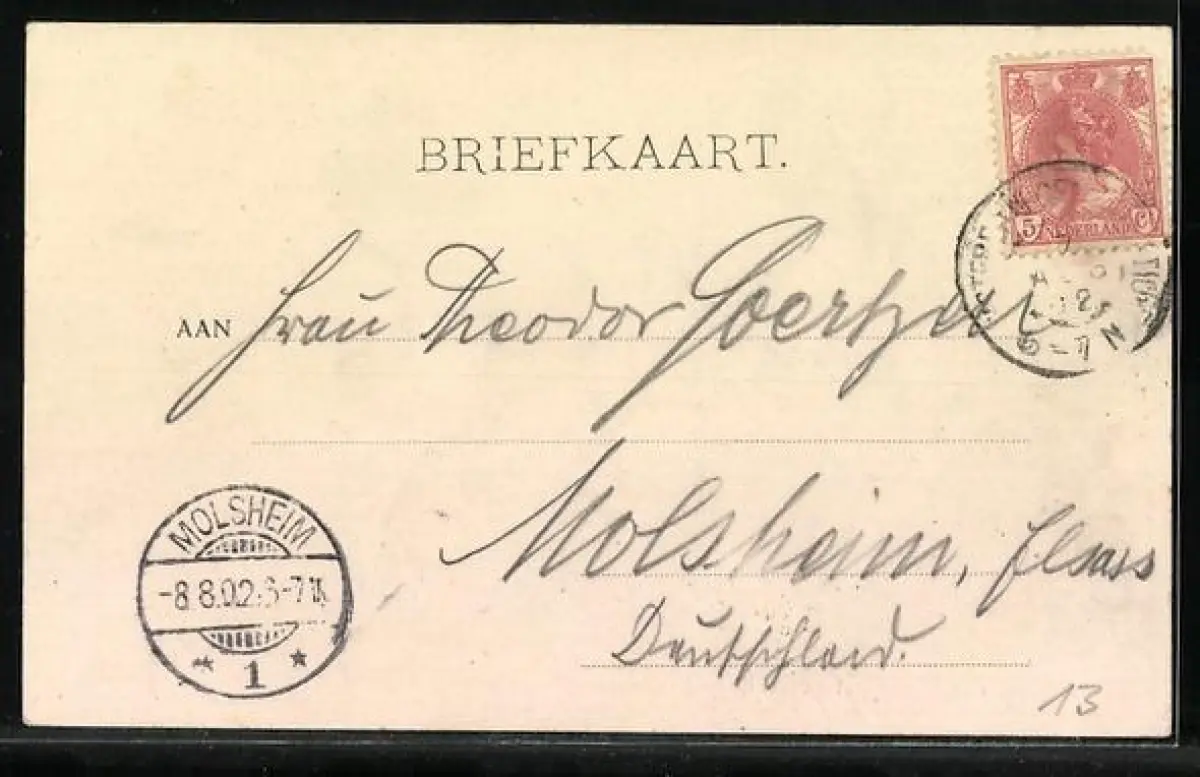 BRIEFKAART.
5 NEDERLAND Ct
AAN Frau Theodor Goertzen
Molsheim, Elsass
Deutschland.
MOLSHEIM
-8.8.02.6-7N.
* 1 *
13